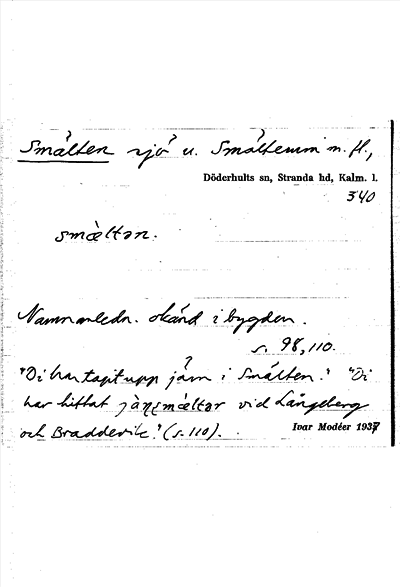 Smälten sjö u. Smältemm m. fl.,
Döderhults sn, Stranda hd, Kalm. l.
340
smæ̀ltən.
Namnanledn. okänd i bygden.
s. 98, 110.
"Di har tagt upp jàrn i Smälten." "Di
har hittat jàṇsmæltər vid Långeberg
och Braddevik." (s. 110).
Ivar Modéer 1937